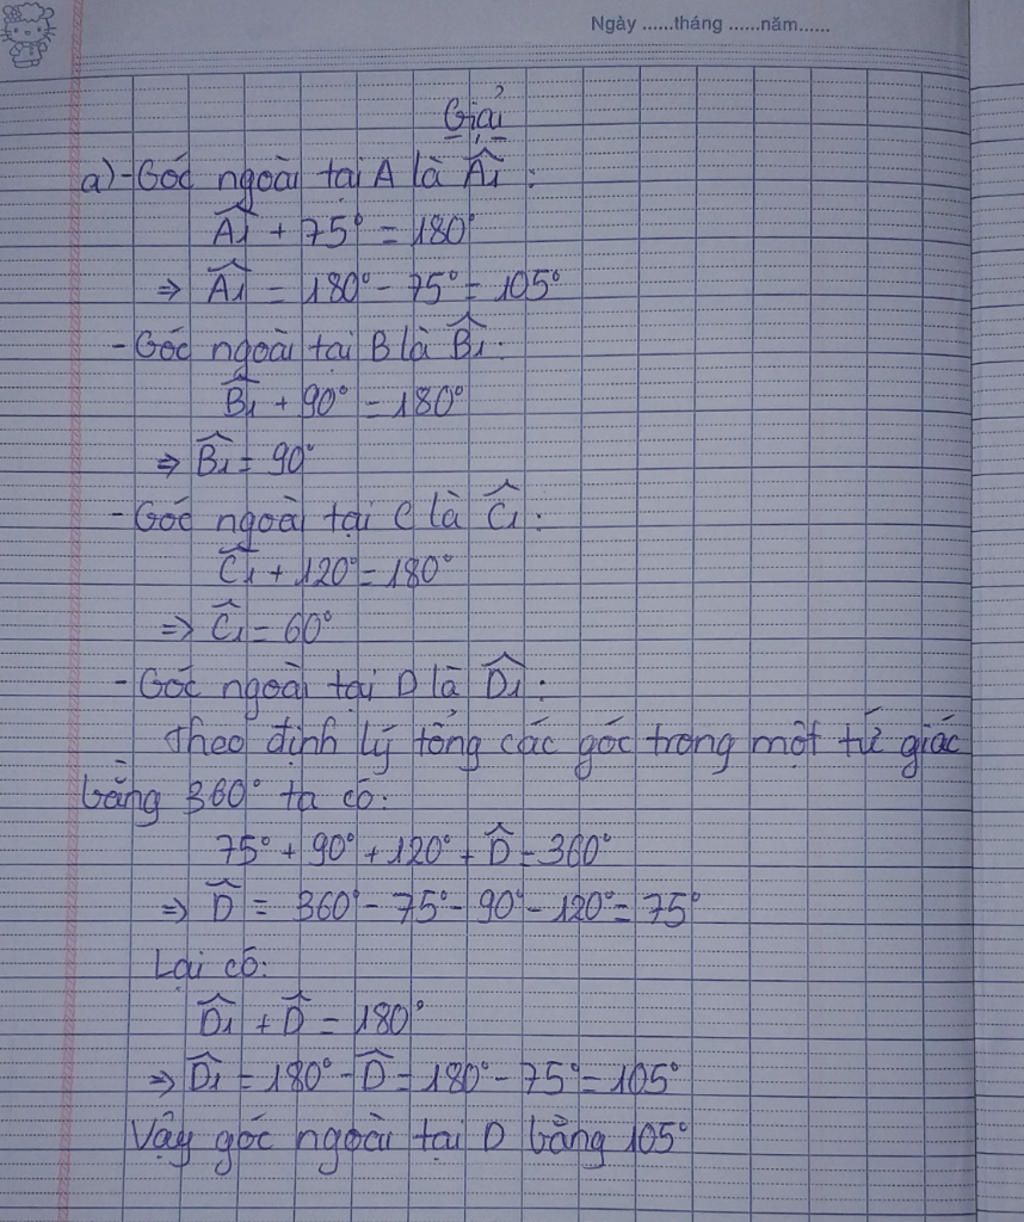 Ngày ......tháng ......năm......
Giải
a) - Góc ngoài tại A là Â₁ :
Â₁ + 75° = 180°
⇒ Â₁ = 180° - 75° = 105°
- Góc ngoài tại B là B̂₁ :
B̂₁ + 90° = 180°
⇒ B̂₁ = 90°
- Góc ngoài tại C là Ĉ₁ :
Ĉ₁ + 120° = 180°
⇒ Ĉ₁ = 60°
- Góc ngoài tại D là D̂₁ :
Theo định lý tổng các góc trong một tứ giác
bằng 360° ta có:
75° + 90° + 120° + D̂ = 360°
⇒ D̂ = 360° - 75° - 90° - 120° = 75°
Lại có:
D̂₁ + D̂ = 180°
⇒ D̂₁ = 180° - D̂ = 180° - 75° = 105°
Vậy góc ngoài tại D bằng 105°